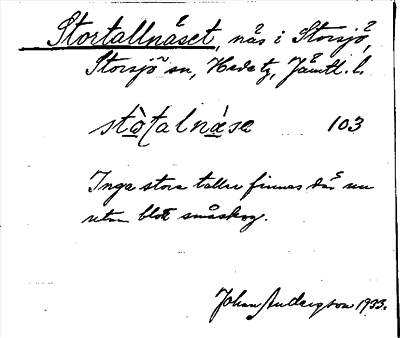 Stortallnäset, näs i Storsjö,
Storsjö sn, Hede tg, Jämtl. l.
stò̱talná̱se 103
Inga stora tallar finnas där nu
utan blott småskog.
Johan Andersson 1933.